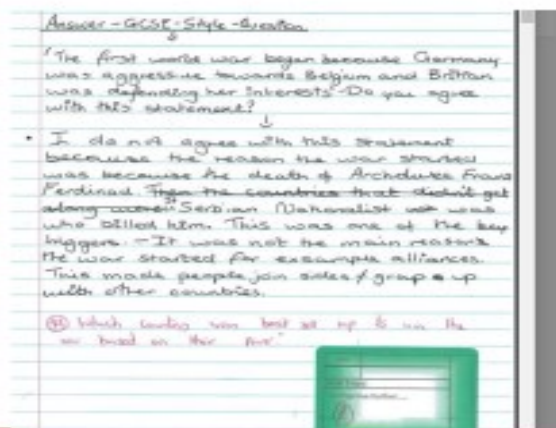 Answer - GCSE - Style - Question
"The first world war began because Germany
was aggressive towards Belgium and Britian
was defending her interests" Do you agree
with this statement?
I do not agree with this statement
because the reason the war started
was because the death of Archdukes Franz
Ferdinad. Then the countries that didn't get
along were Serbian Nationalist was
who billed him. This was one of the key
triggers. - It was not the main reasons
the war started for example alliances.
This made people join sides / group up
with other countries.
Which country was best set up to win the
war based on their